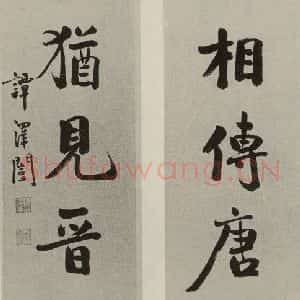 相傳唐
猶見晉
譚澤闓
shufawang.CN